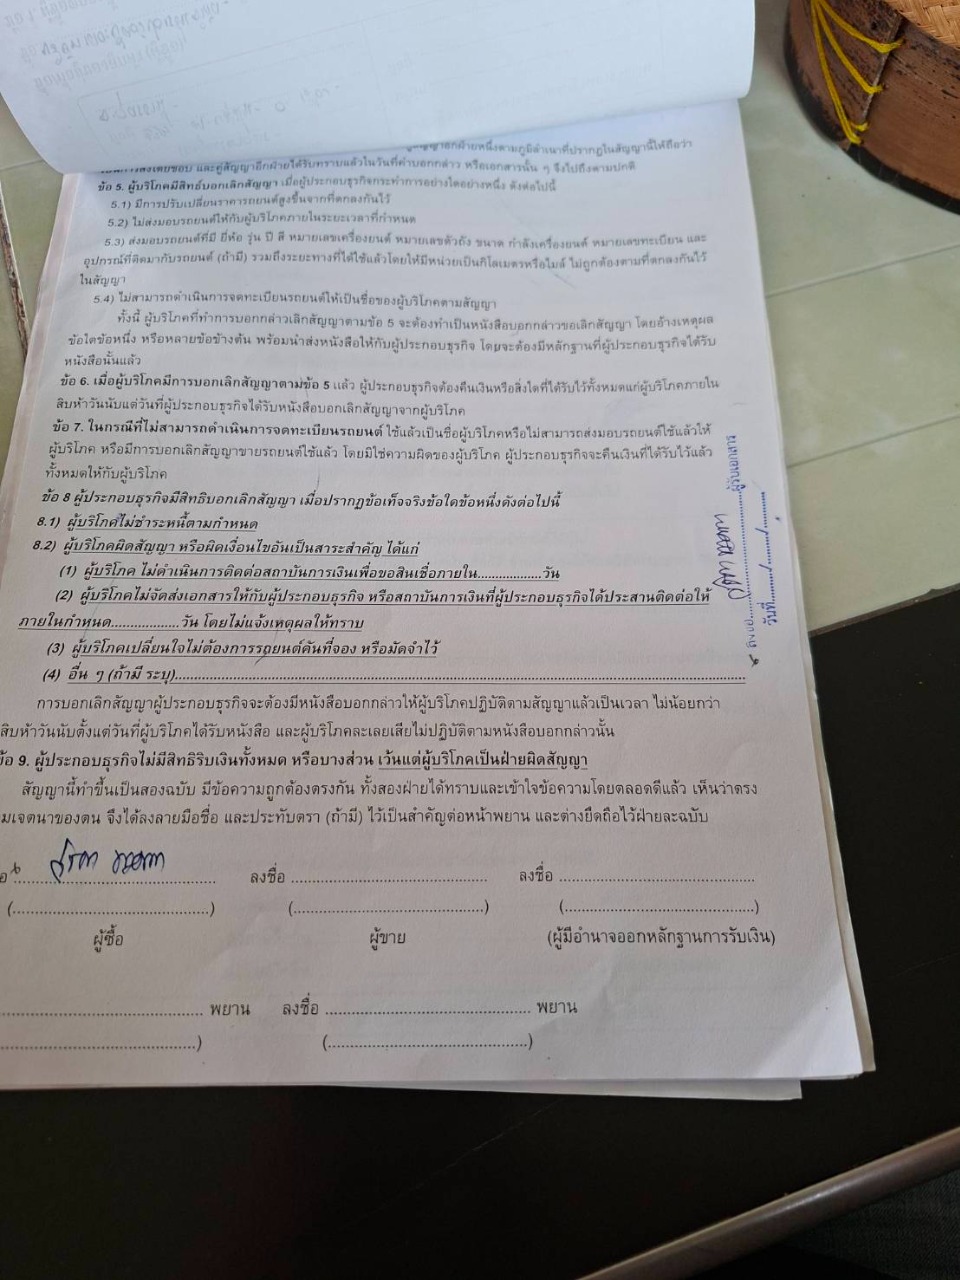 สัญญาอีกฝ่ายหนึ่งตามภูมิลำเนาที่ปรากฏในสัญญานี้ให้ถือว่า
และคู่สัญญาอีกฝ่ายได้รับทราบแล้วในวันที่คำบอกกล่าว หรือเอกสารนั้น ๆ จึงไปถึงตามปกติ
ข้อ 5. ผู้บริโภคมีสิทธิ์บอกเลิกสัญญา เมื่อผู้ประกอบธุรกิจกระทำการอย่างใดอย่างหนึ่ง ดังต่อไปนี้
5.1) มีการปรับเปลี่ยนราคารถยนต์สูงขึ้นจากที่ตกลงกันไว้
5.2) ไม่ส่งมอบรถยนต์ให้กับผู้บริโภคภายในระยะเวลาที่กำหนด
5.3) ส่งมอบรถยนต์ที่มี ยี่ห้อ รุ่น ปี สี หมายเลขเครื่องยนต์ หมายเลขตัวถัง ขนาด กำลังเครื่องยนต์ หมายเลขทะเบียน และ
อุปกรณ์ที่ติดมากับรถยนต์ (ถ้ามี) รวมถึงระยะทางที่ได้ใช้แล้วโดยให้มีหน่วยเป็นกิโลเมตรหรือไมล์ ไม่ถูกต้องตามที่ตกลงกันไว้
ในสัญญา
5.4) ไม่สามารถดำเนินการจดทะเบียนรถยนต์ให้เป็นชื่อของผู้บริโภคตามสัญญา
ทั้งนี้ ผู้บริโภคที่ทำการบอกกล่าวเลิกสัญญาตามข้อ 5 จะต้องทำเป็นหนังสือบอกกล่าวขอเลิกสัญญา โดยอ้างเหตุผล
ข้อใดข้อหนึ่ง หรือหลายข้อข้างต้น พร้อมนำส่งหนังสือให้กับผู้ประกอบธุรกิจ โดยจะต้องมีหลักฐานที่ผู้ประกอบธุรกิจได้รับ
หนังสือนั้นแล้ว
ข้อ 6. เมื่อผู้บริโภคมีการบอกเลิกสัญญาตามข้อ 5 แล้ว ผู้ประกอบธุรกิจต้องคืนเงินหรือสิ่งใดที่ได้รับไว้ทั้งหมดแก่ผู้บริโภคภายใน
สิบห้าวันนับแต่วันที่ผู้ประกอบธุรกิจได้รับหนังสือบอกเลิกสัญญาจากผู้บริโภค
ข้อ 7. ในกรณีที่ไม่สามารถดำเนินการจดทะเบียนรถยนต์ ใช้แล้วเป็นชื่อผู้บริโภคหรือไม่สามารถส่งมอบรถยนต์ใช้แล้วให้
ผู้บริโภค หรือมีการบอกเลิกสัญญาขายรถยนต์ใช้แล้ว โดยมิใช่ความผิดของผู้บริโภค ผู้ประกอบธุรกิจจะคืนเงินที่ได้รับไว้แล้ว
ทั้งหมดให้กับผู้บริโภค
ข้อ 8 ผู้ประกอบธุรกิจมีสิทธิบอกเลิกสัญญา เมื่อปรากฏข้อเท็จจริงข้อใดข้อหนึ่งดังต่อไปนี้
8.1) ผู้บริโภคไม่ชำระหนี้ตามกำหนด
8.2) ผู้บริโภคผิดสัญญา หรือผิดเงื่อนไขอันเป็นสาระสำคัญ ได้แก่
(1) ผู้บริโภค ไม่ดำเนินการติดต่อสถาบันการเงินเพื่อขอสินเชื่อภายใน..................วัน
(2) ผู้บริโภคไม่จัดส่งเอกสารให้กับผู้ประกอบธุรกิจ หรือสถาบันการเงินที่ผู้ประกอบธุรกิจได้ประสานติดต่อให้
ภายในกำหนด...................วัน โดยไม่แจ้งเหตุผลให้ทราบ
(3) ผู้บริโภคเปลี่ยนใจไม่ต้องการรถยนต์คันที่จอง หรือมัดจำไว้
(4) อื่น ๆ (ถ้ามี ระบุ)..........................................................................................
การบอกเลิกสัญญาผู้ประกอบธุรกิจจะต้องมีหนังสือบอกกล่าวให้ผู้บริโภคปฏิบัติตามสัญญาแล้วเป็นเวลา ไม่น้อยกว่า
สิบห้าวันนับตั้งแต่วันที่ผู้บริโภคได้รับหนังสือ และผู้บริโภคละเลยเสียไม่ปฏิบัติตามหนังสือบอกกล่าวนั้น
ข้อ 9. ผู้ประกอบธุรกิจไม่มีสิทธิริบเงินทั้งหมด หรือบางส่วน เว้นแต่ผู้บริโภคเป็นฝ่ายผิดสัญญา
สัญญานี้ทำขึ้นเป็นสองฉบับ มีข้อความถูกต้องตรงกัน ทั้งสองฝ่ายได้ทราบและเข้าใจข้อความโดยตลอดดีแล้ว เห็นว่าตรง
มเจตนาของตน จึงได้ลงลายมือชื่อ และประทับตรา (ถ้ามี) ไว้เป็นสำคัญต่อหน้าพยาน และต่างยึดถือไว้ฝ่ายละฉบับ
อ............................................ ลงชื่อ ............................................ ลงชื่อ ............................................
(............................................) (............................................) (............................................)
ผู้ซื้อ ผู้ขาย (ผู้มีอำนาจออกหลักฐานการรับเงิน)
............................................ พยาน ลงชื่อ ............................................ พยาน
............................................) (............................................)
ลงชื่อ............................ผู้รับเอกสาร
วันที่........../........../..........